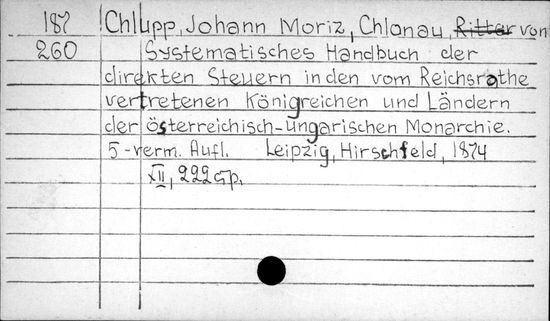 187 Chlupp, Johann Moriz, Chlonau, Ritter von
260 Systematisches Handbuch der
direkten Steuern in den vom Reichsrathe
vertretenen Königreichen und Ländern
der österreichisch-ungarischen Monarchie.
5-verm. Aufl. Leipzig, Hirschfeld, 1874
XII, 222 Sp.